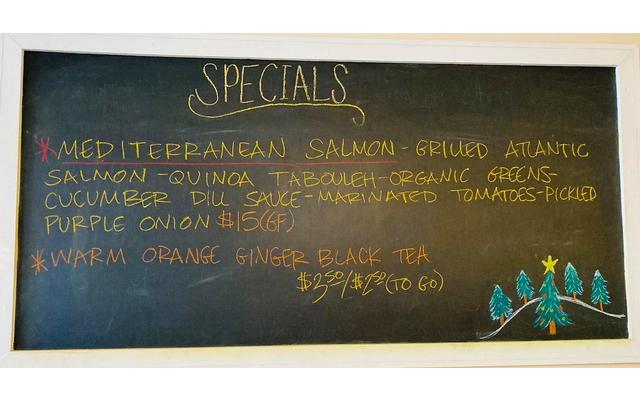 SPECIALS
*MEDITERRANEAN SALMON-GRILLED ATLANTIC
SALMON-QUINOA TABOULEH-ORGANIC GREENS-
CUCUMBER DILL SAUCE-MARINATED TOMATOES-PICKLED
PURPLE ONION $15(GF)
*WARM ORANGE GINGER BLACK TEA
$3.50/$2.50(TO GO)